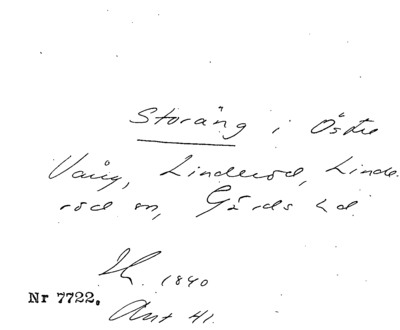 Storäng i Östra
Vång, Linderöd, Linde-
röd sn, Gärds hd.
1840
Nr 7722.
Ant 41.